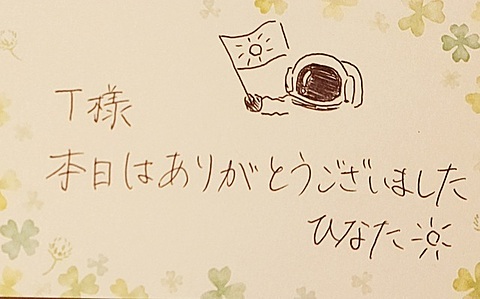 T様
本日はありがとうございました
ひなた